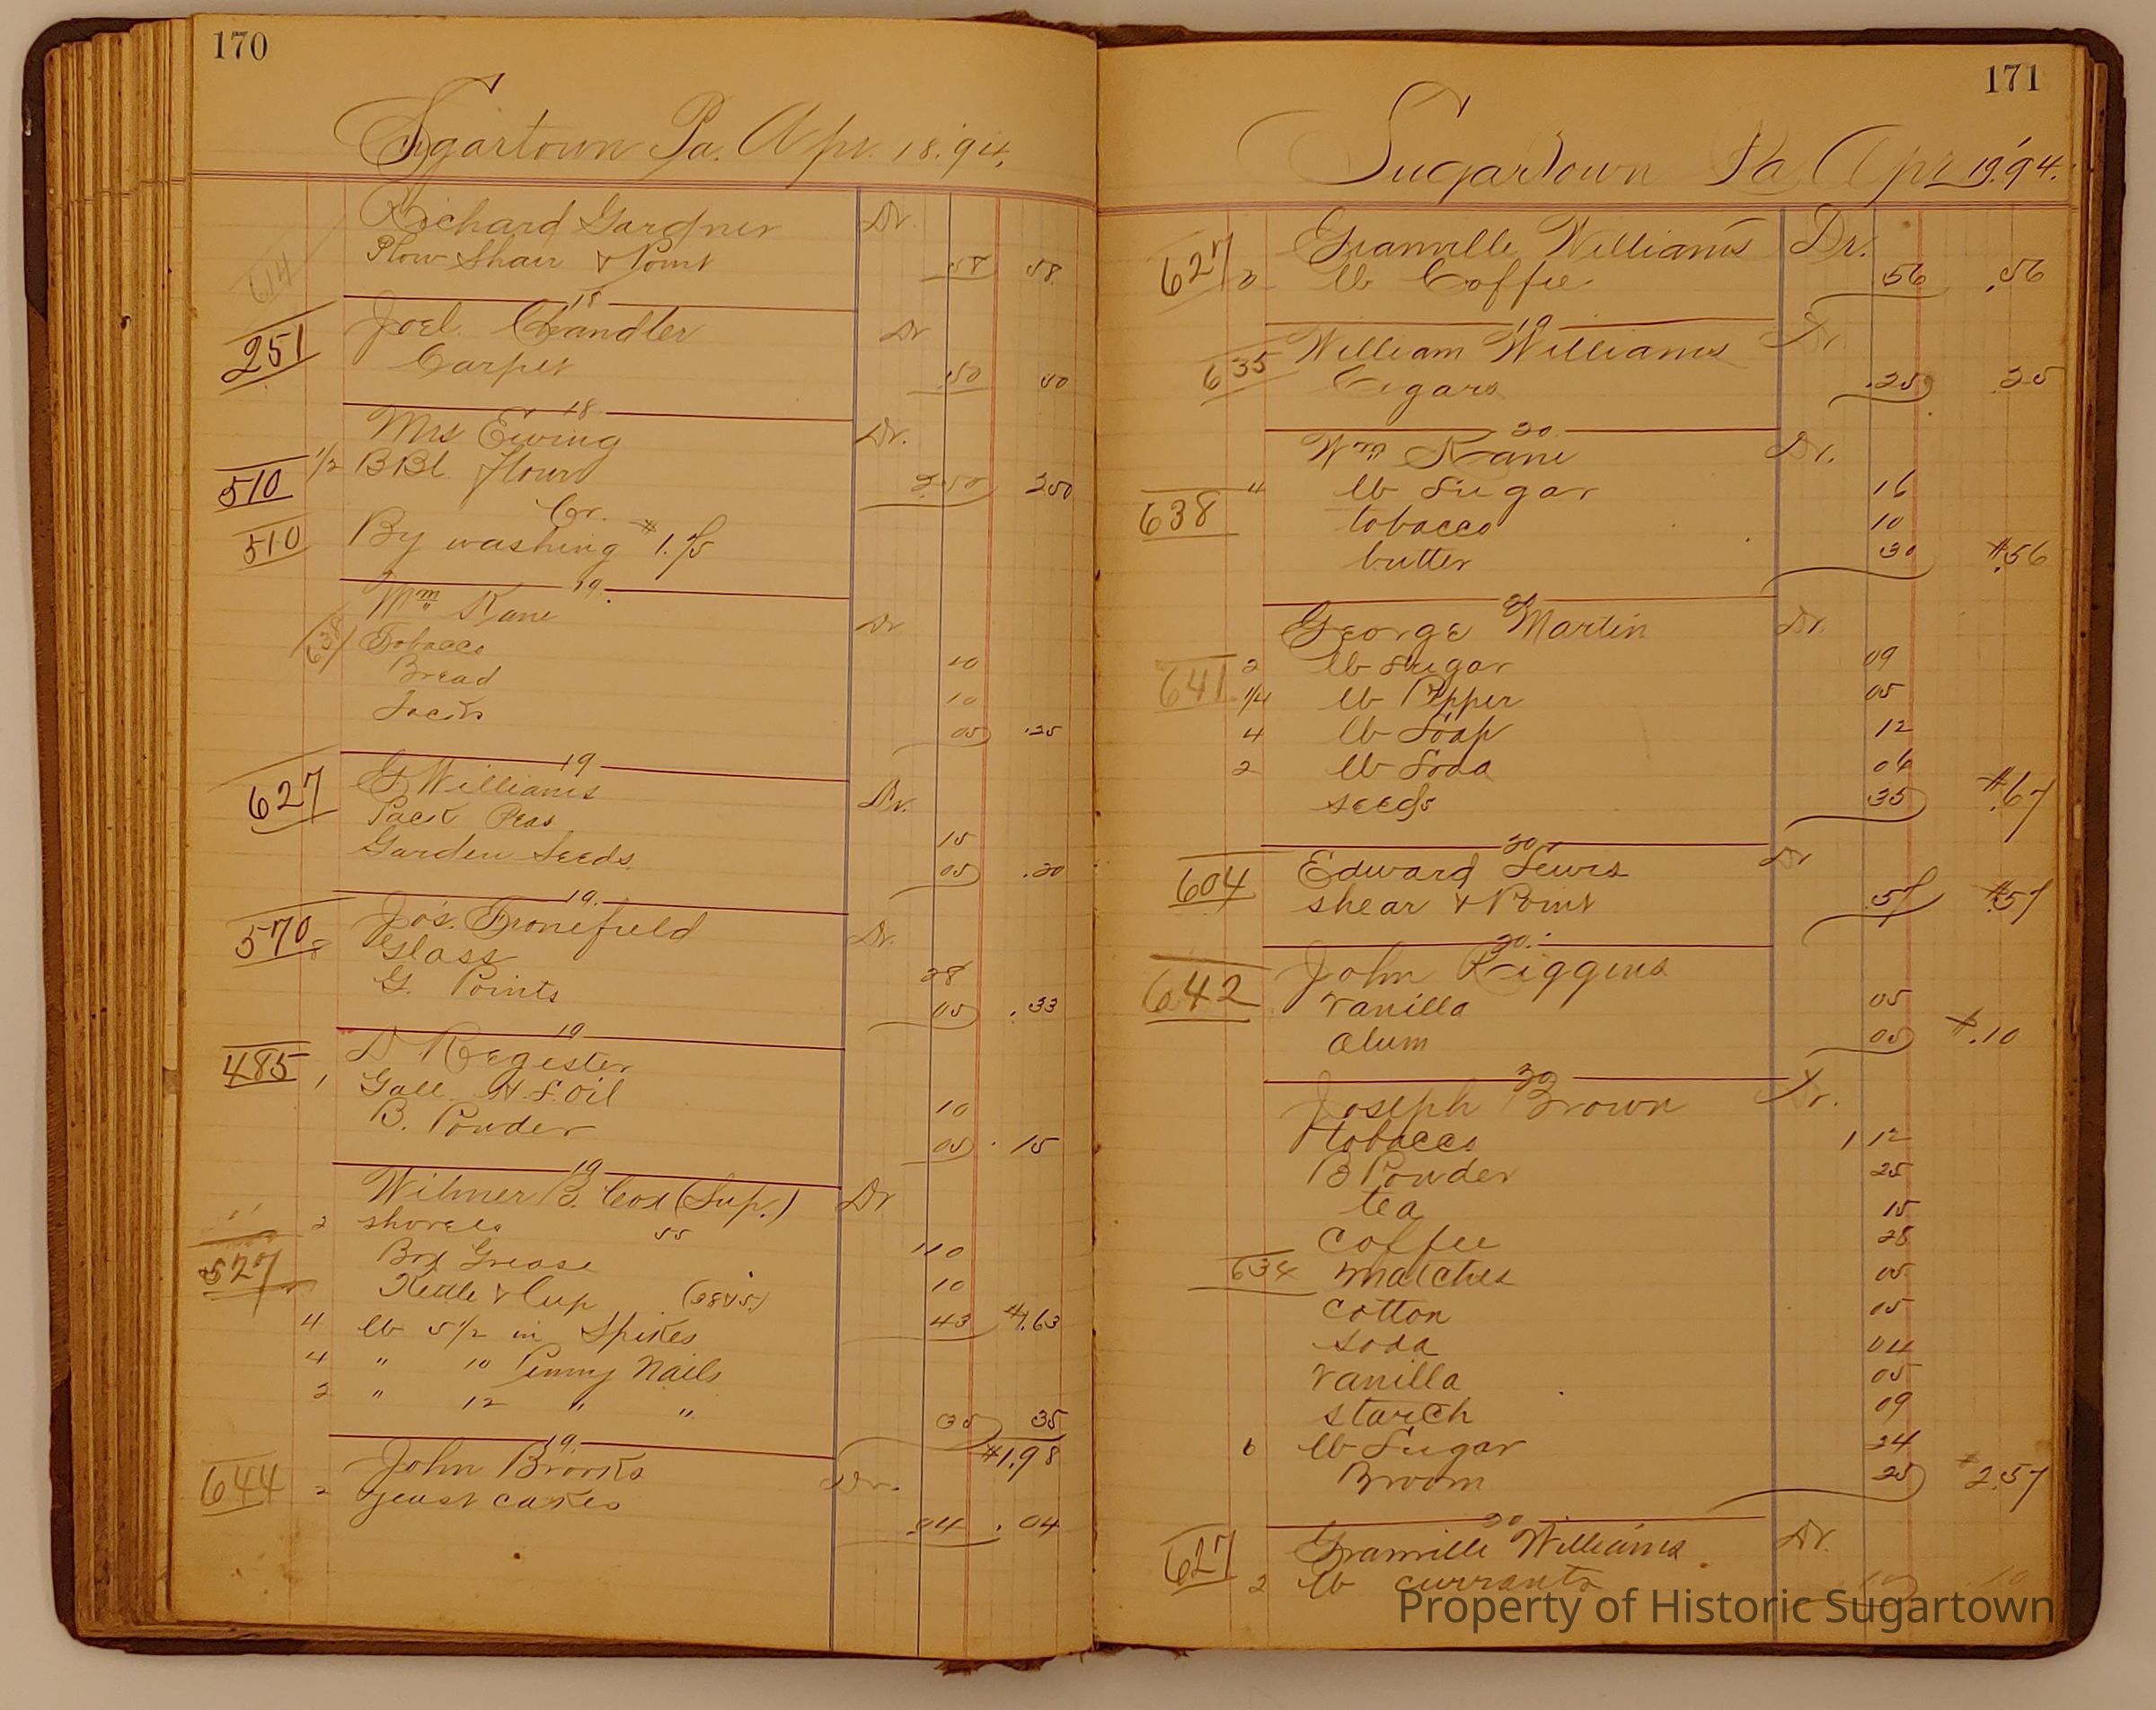 170
Sugartown Pa. Apr. 18. '94.
Richard Gardner Dr
614 Plow Shair & Point 58 58
18
Joel Chandler Dr
251 Carpet .50 50
18
Mrs Ewing Dr.
510 1/2 BBl flour 2.50 2 50
Cr.
510 By washing $1.75
19.
Wm Kane Dr
638 Tobacco 10
Bread 10
05 .25
19
627 G Williams Dr.
Pack Peas 15
Garden Seeds. 05 .20
19.
570 Jos. Tronefield Dr.
8 Glass 28
G. Points 05 .33
19
485 D Register
1 Gall. H. L. Oil 10
B. Powder 05 .15
19
Wilmer B. Cox (Sup.) Dr
2 shovels 55 1 10
527 Box Grease 10
Kettle & Cup (38&5.) 43 $1.63
4 lb 5 1/2 in Spikes
4 " 10 Penny Nails
2 " 12 " " 35 35
$1.98
19.
644 John Brooks Dr.
2 yeast cakes .04 .04
171
Sugartown Pa Apr 19. '94.
627 Granville Williams Dr.
2 lb Coffee .56 .56
19
635 William Williams Dr.
Cigars .25 25
20
Wm Kane Dr.
638 4 lb Sugar 16
tobacco 10
butter 30 $.56
20
George Martin Dr.
641 2 lb Sugar 09
1/4 lb Pepper 05
4 lb Soap 12
2 lb Soda 06
seeds 35 $.67
20
604 Edward Lewis Dr
shear & Point .57 $.57
20.
642 John Riggins
Vanilla 05
Alum 05 $.10
20
Joseph Brown Dr.
tobacco 1 12
B Powder 25
tea 15
Coffee 28
634 Matches 05
Cotton 05
Soda 04
Vanilla 05
Starch 09
6 lb Sugar 24
Broom 25 $2.57
20
627 Granville Williams Dr.
2 lb currants 10 .10
Property of Historic Sugartown